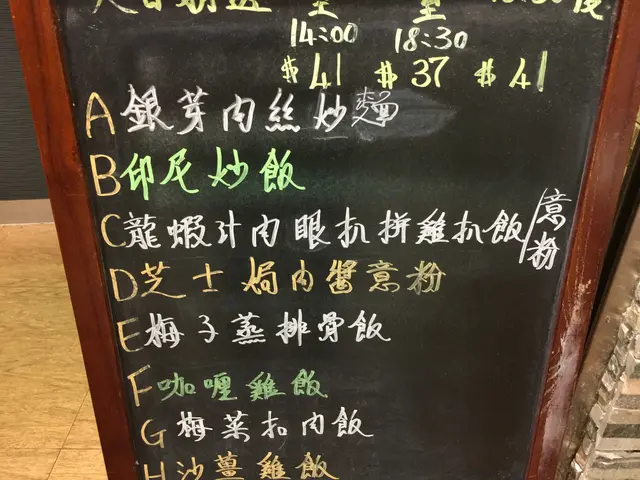 至 至
14:00 18:30
$41 $37 $41
A 銀芽肉絲炒麵
B 印尼炒飯
C 龍蝦汁肉眼扒拼雞扒飯/意粉
D 芝士焗肉醬意粉
E 梅子蒸排骨飯
F 咖喱雞飯
G 梅菜扣肉飯
H 沙薑雞飯